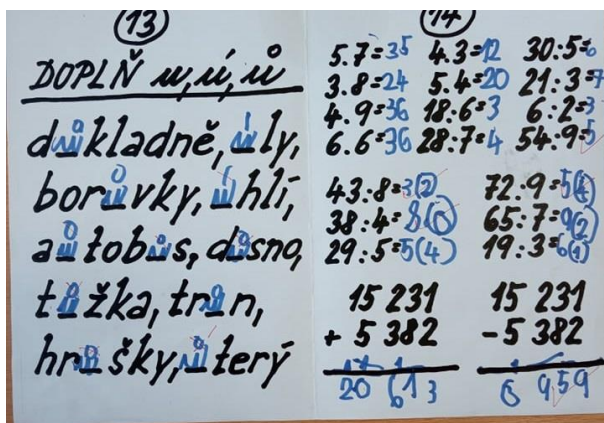 13
DOPLŇ u,ú,ů
důkladně, úly,
borůvky, úhlí,
aůtobus, důsno,
tůžka, trůn,
hrůšky, ůterý
14
5.7=35 4.3=12 30:5=6
3.8=24 5.4=20 21:3=7
4.9=36 18:6=3 6:2=3
6.6=36 28:7=4 54:9=5
43:8=3(2) 72:9=5(4)
38:4=8(6) 65:7=9(2)
29:5=5(4) 19:3=6(1)
15 231 15 231
+ 5 382 -5 382
20 613 959